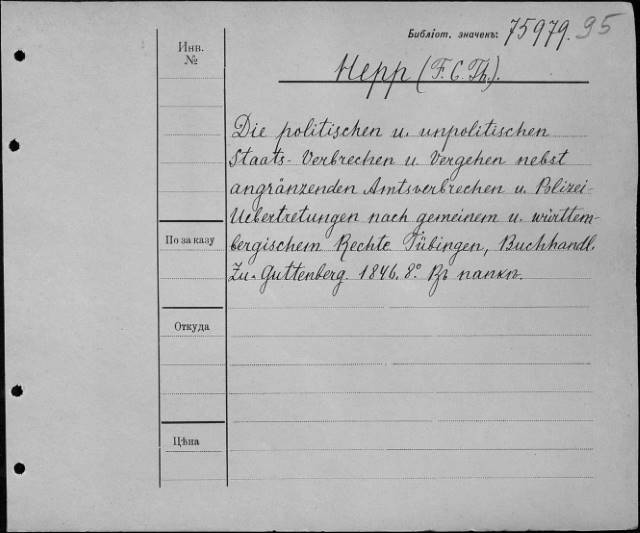 Библіот. значекъ: 75979. 95
Инв.
№
Hepp (F. C. Th.).
Die politischen u. unpolitischen
Staats-Verbrechen u. Vergehen nebst
angränzenden Amtsverbrechen u. Polizei-
Uebertretungen nach gemeinem u. württem-
По заказу
bergischem Rechte Tübingen, Buchhandl.
Zu-Guttenberg 1846. 8º. Въ папкѣ.
Откуда
Цѣна